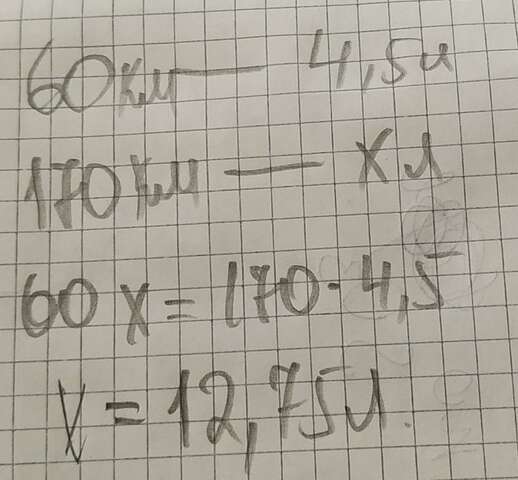 60км — 4,5л
170км — х л
60 х = 170·4,5
х = 12,75л.